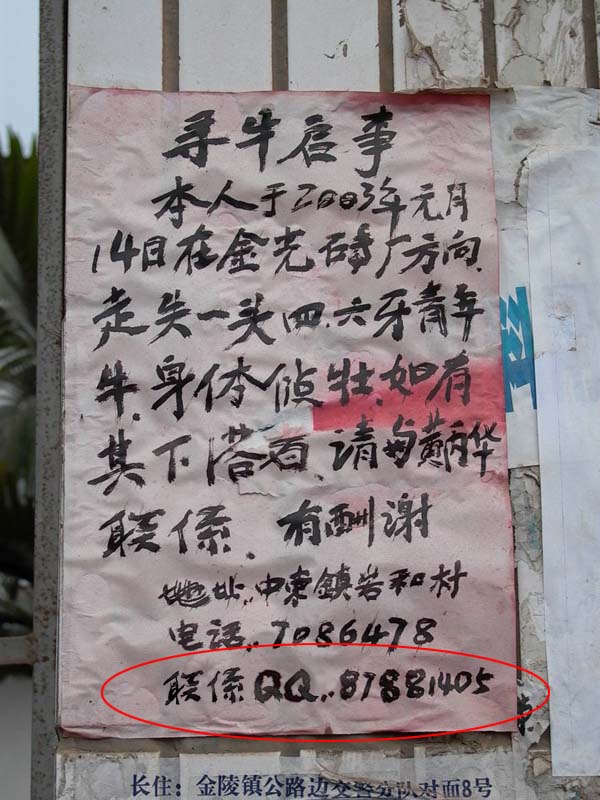 寻牛启事
本人于2003年元月
14日在金光砖厂方向
走失一头四、六牙青年
牛,身体侦壮,如有
其下落者,请与黄丙华
联係、有酬谢
地址:中東鎮岩和村
电话:7086478
联係QQ:87881405
长住:金陵镇公路边交警分队对面8号